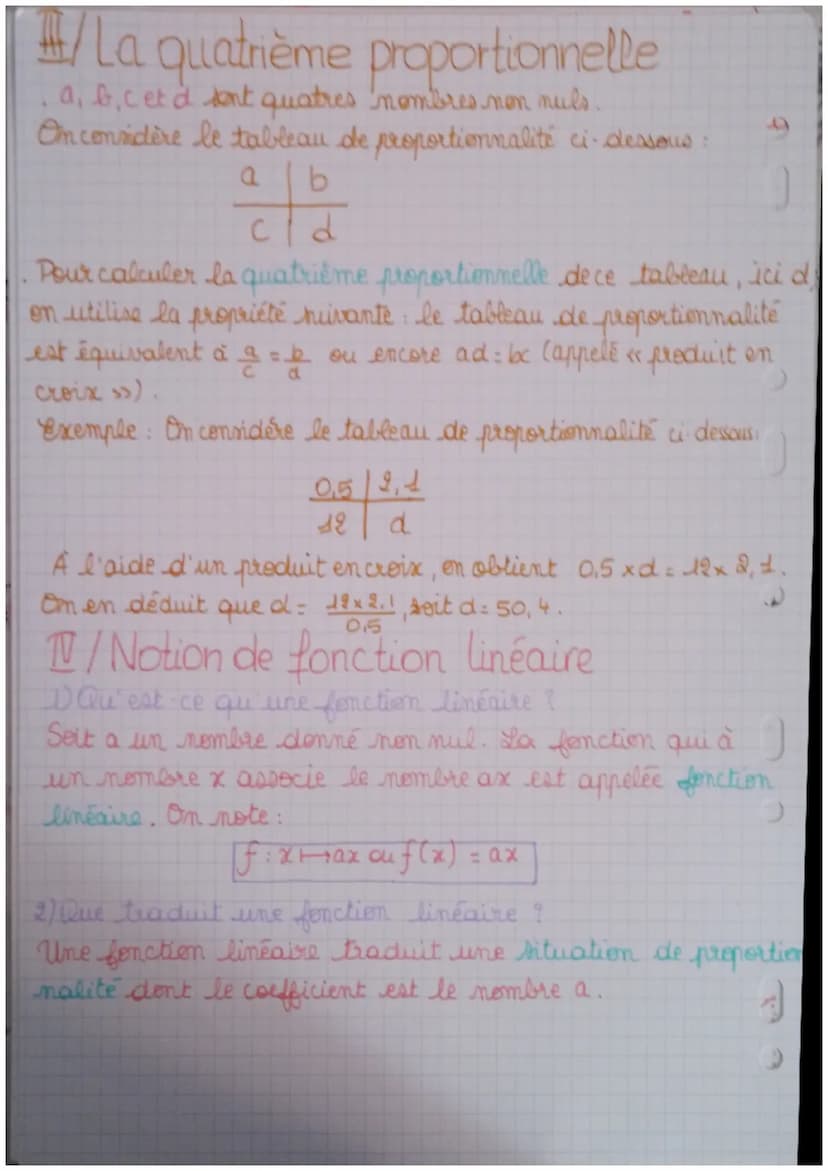 III/ La quatrième proportionnelle
. a, b, c et d sont quatres nombres non nuls.
On considère le tableau de proportionnalité ci-dessous :
a | b
c | d
. Pour calculer la quatrième proportionnelle de ce tableau, ici d,
on utilise la propriété suivante : le tableau de proportionnalité
est équivalent à a/c = b/d ou encore ad = bc (appelé « produit en
croix »).
Exemple : On considère le tableau de proportionnalité ci-dessous:
0,5 | 2,1
12 | d
À l'aide d'un produit en croix, on obtient 0,5 × d = 12 × 2,1.
On en déduit que d = 12 × 2,1 / 0,5, soit d = 50,4.
IV/ Notion de fonction linéaire
1) Qu'est-ce qu'une fonction linéaire ?
Soit a un nombre donné non nul. La fonction qui à
un nombre x associe le nombre ax est appelée fonction
linéaire. On note :
f : x ↦ ax ou f(x) = ax
2) Que traduit une fonction linéaire ?
Une fonction linéaire traduit une situation de proportion
nalité dont le coefficient est le nombre a.